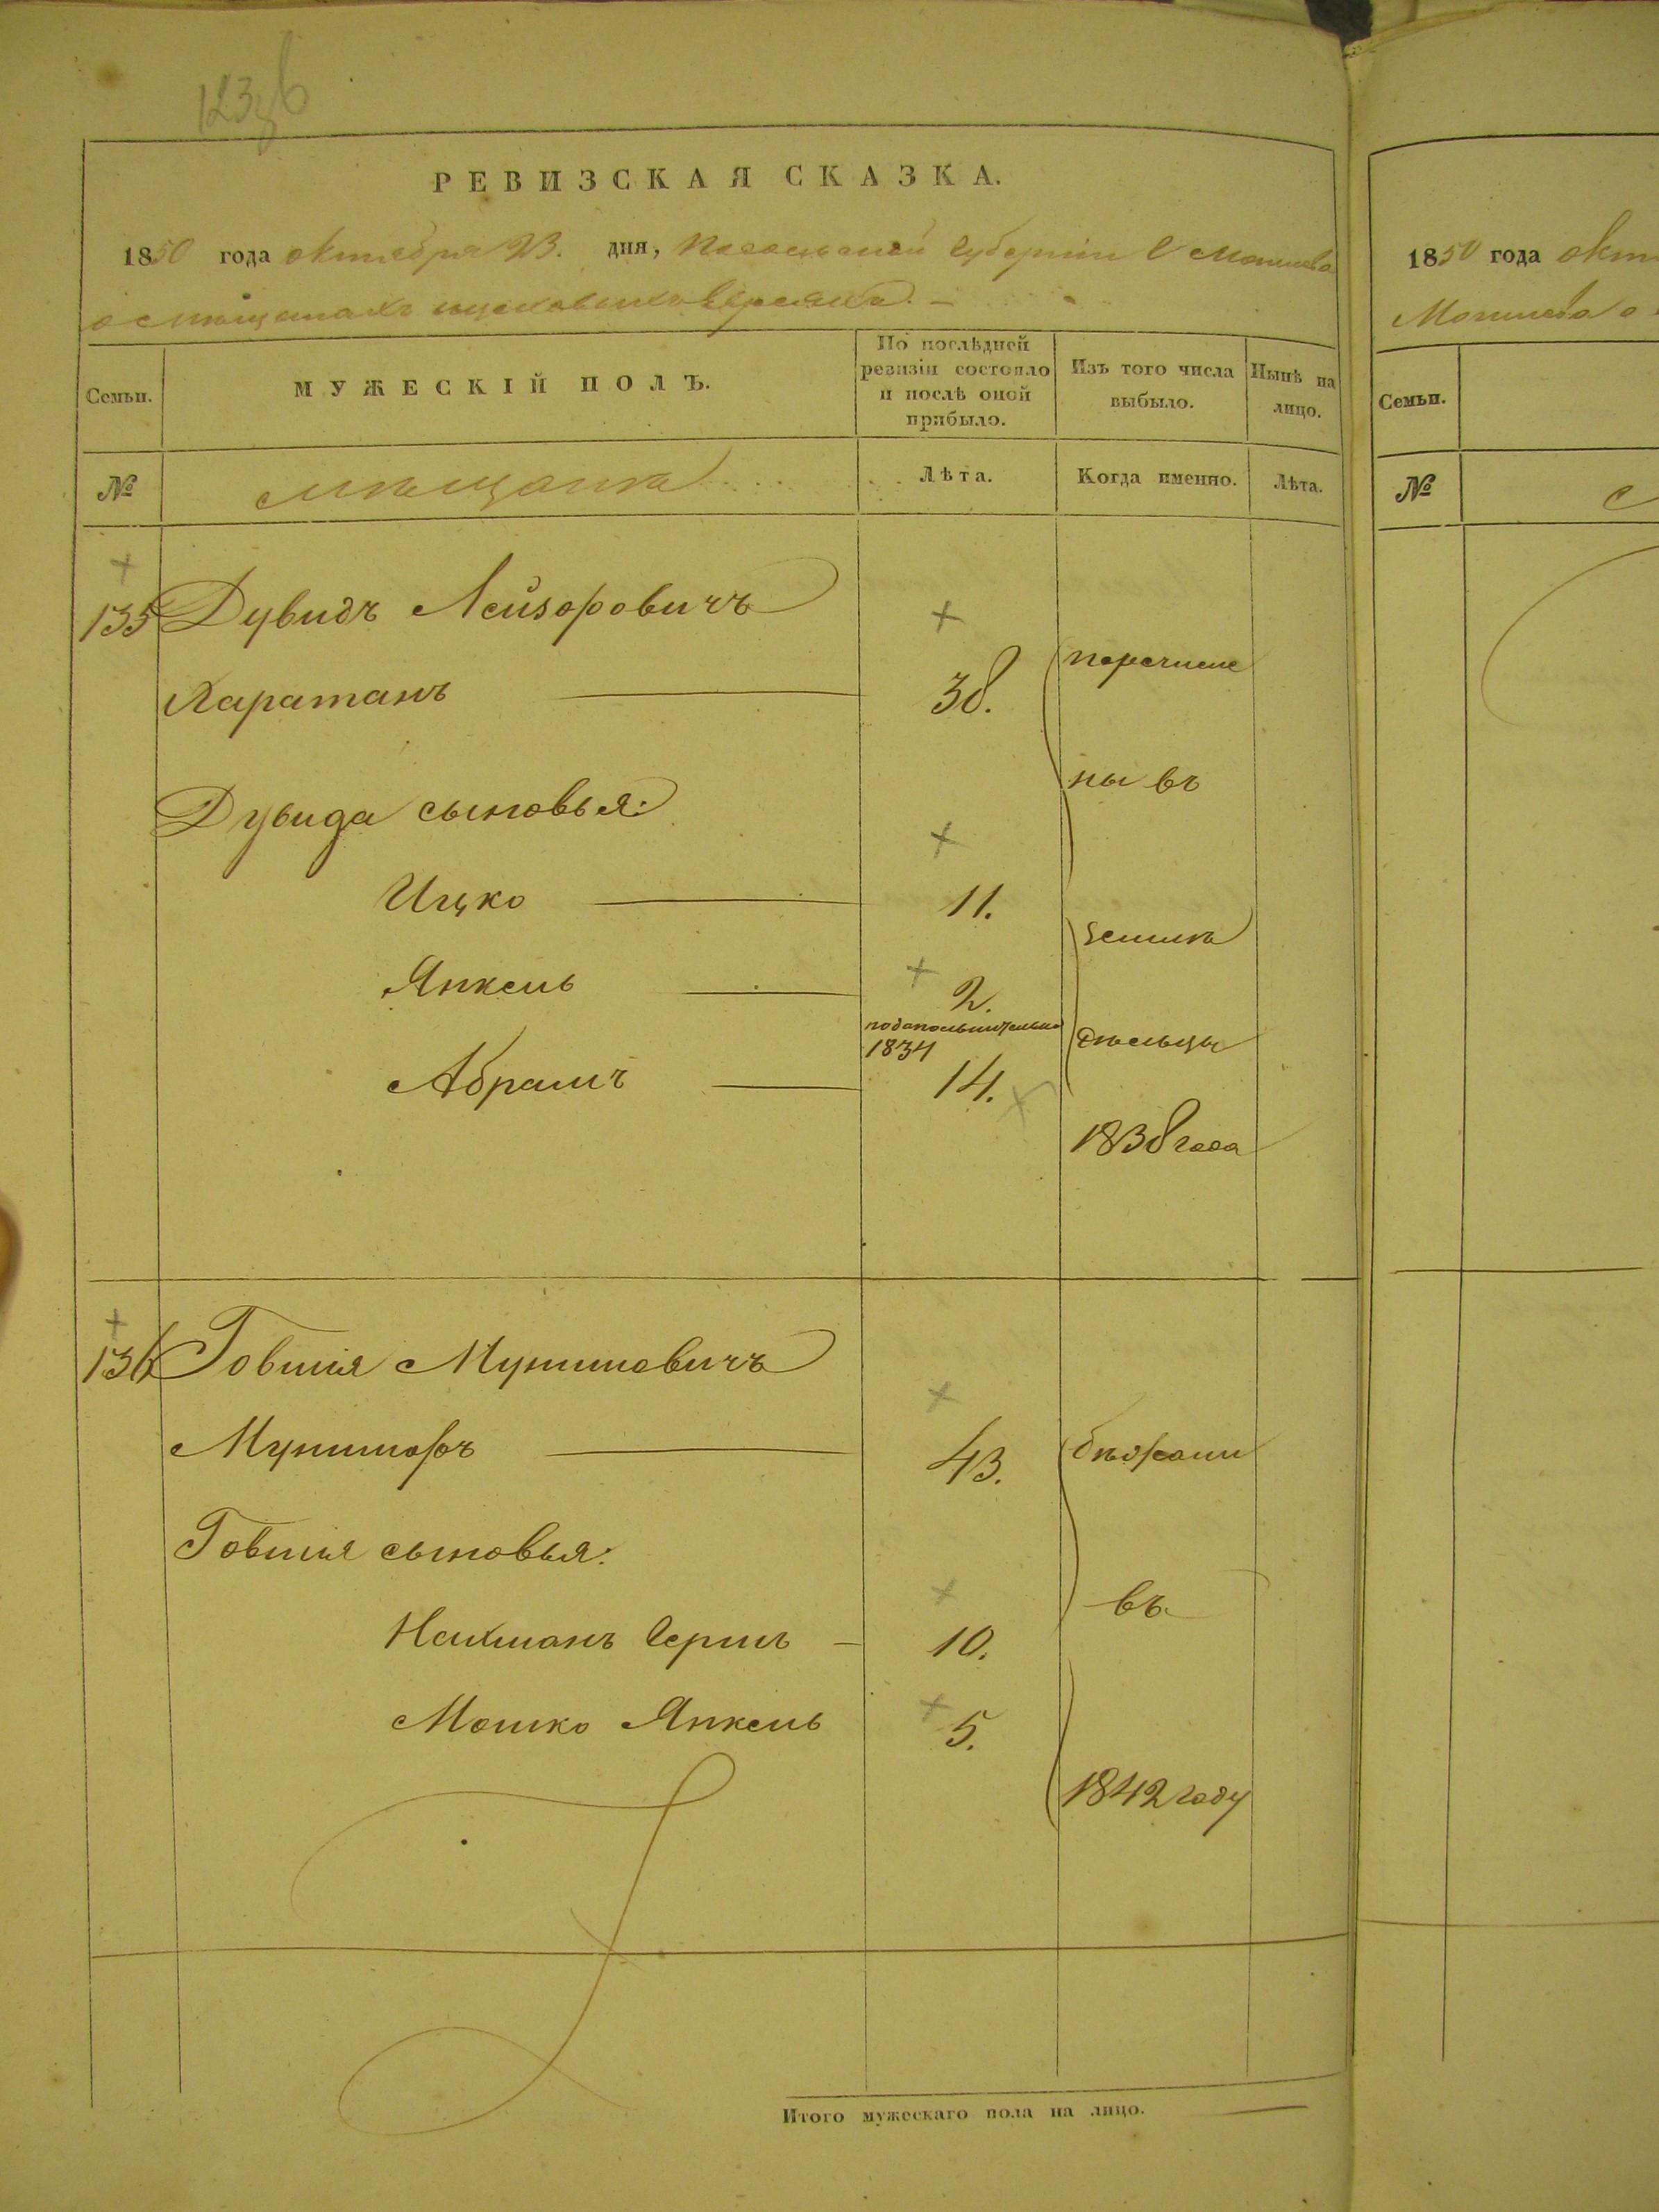 123 об
РЕВИЗСКАЯ СКАЗКА.
1850 года октября 23. дня, Подольской Губерніи Г Могилева
о мѣщанахъ
По послѣдней ревизіи состояло и послѣ оной прибыло.
Изъ того числа выбыло.
Нынѣ на лицо.
Семьи.
МУЖЕСКІЙ ПОЛЪ.
№
мѣщане
Лѣта.
Когда именно.
Лѣта.
135 Дувидъ Лейзоровичъ
Каратанъ 38. перечисле
ны въ
Дувида сыновья:
Ицко 11.
земле
Янкель 2.
подополнительной
1834
дѣльцы
Абрамъ 14.
1838 года
136 Говшія Мунишовичъ
Мунишоръ 43. бѣжали
Говшія сыновья:
въ
Нахманъ Гершъ 10.
Мошко Янкель 5.
1842 году
Итого мужескаго пола на лицо.
1850 года окт
Могилева о
Семьи.
№